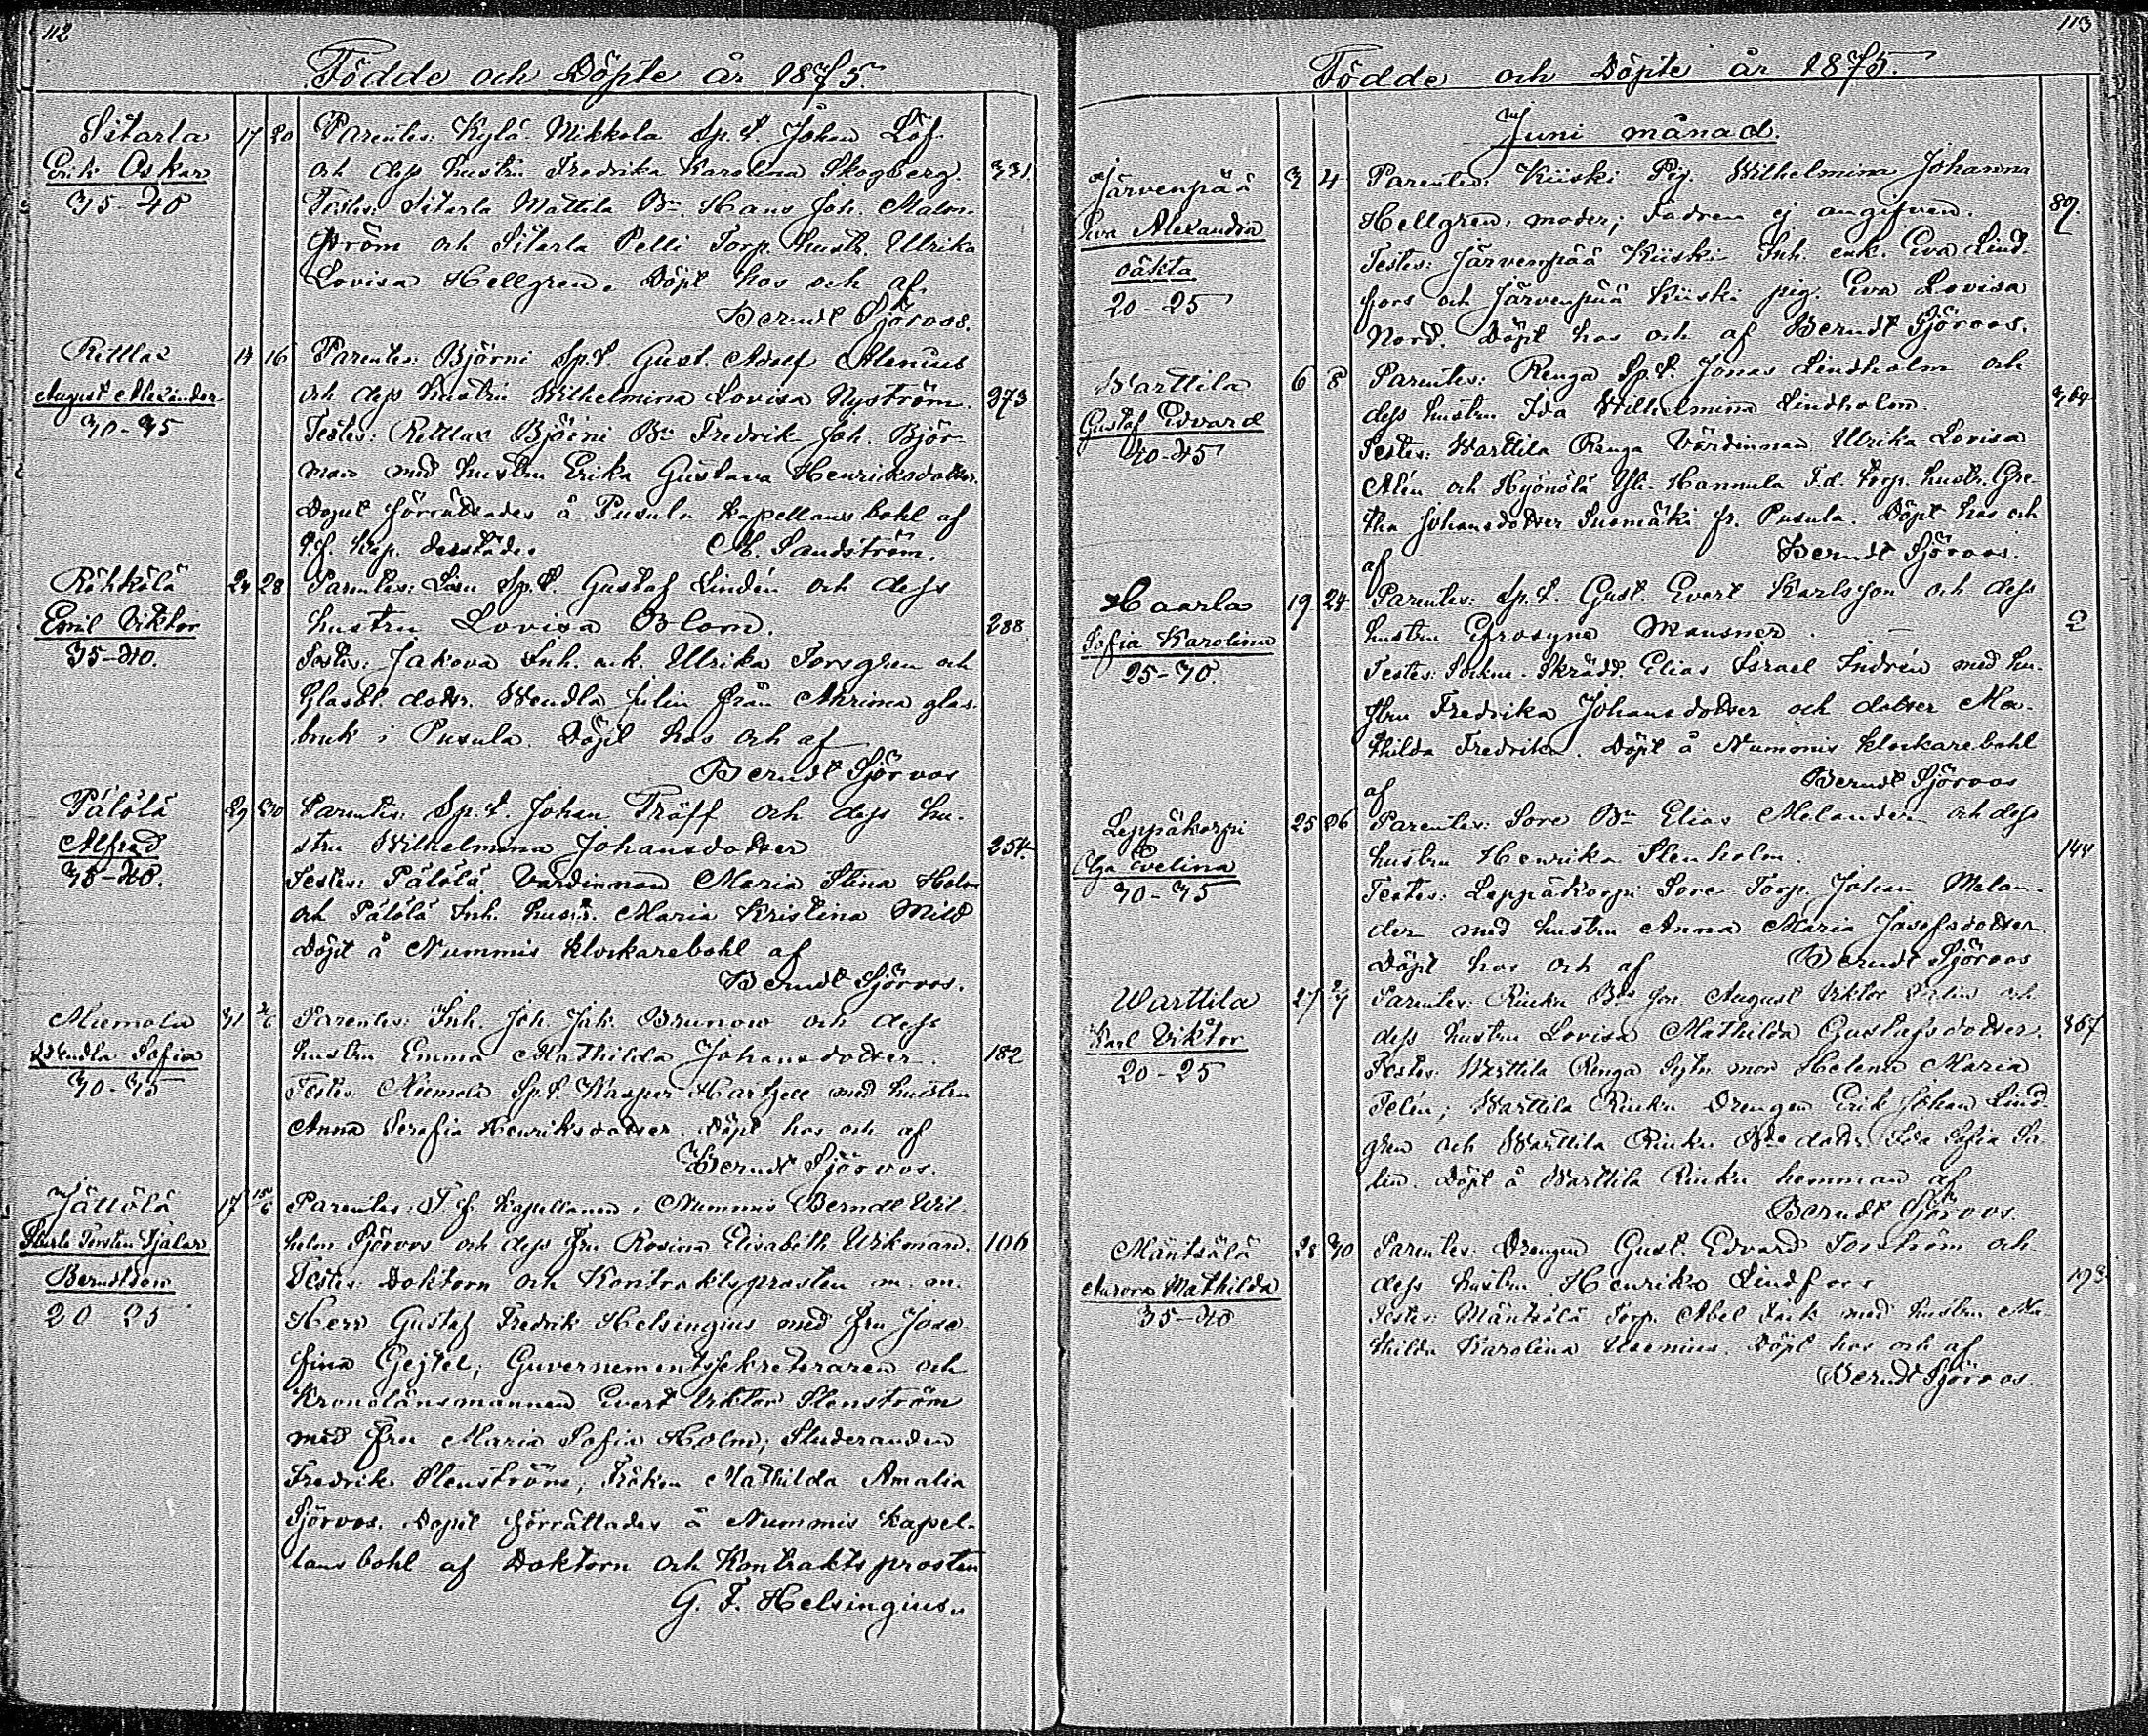 112
Födde och Döpte år 1875.
Sitarla 17 20 Parentes: Kylä-Mikkola Sp.t. Johan Löf
Erik Oskar och dess hustru Fredrika Karolina Skogberg. 331
35-40 Testes: Sitarla Mattila Bn. Hans Joh. Malm-
ström och Sitarla Pelli Torp. hustr. Ulrika
Lovisa Hellgren. Döpt hos och af
Berndt Sjöroos.
Rettlax 14 16 Parentes: Björni Sp.t. Gust. Adolf Alenius
August Alexander och dess hustru Wilhelmina Lovisa Nyström. 373
30-35 Testes: Rettlax Björni Bn Fredrik Joh. Björ-
man med hustru Erika Gustava Henriksdotter.
Dopet förrättades å Pusula Kapellansbohl af
t.f. Kap. derstädes M. Sandström.
Röhkölä 24 28 Parentes: Sp.t. Gustaf Lindén och dess
Emil Viktor hustru Lovisa Blom. 288
35-40. Testes: Jakova Inh. enk. Ulrika Forsgren och
Glasbl. dotr. Wendla Julin från Ahrima glas-
bruk i Pusula. Döpt hos och af
Berndt Sjöroos
Pälölä 29 30 Parentes: Sp.t. Johan Träff och dess hu-
Alfred stru Wilhelmina Johansdotter 254.
35-40. Testes: Pälölä Värdinnan Maria Stina Holm
och Pälölä Inh. hustr. Maria Kristina Mild
Döpt å Nummis klockarebohl af
Berndt Sjöroos.
Niemola 31 2/6 Parentes: Inh. Joh. Jak. Brunow och dess
Wendla Sofia hustru Emma Mathilda Johansdotter. 182
30-35 Testes Niemola Sp.t. Kasper Hartzell med hustru
Anna Serafia Henriksdotter. Döpt hos och af
Berndt Sjöroos.
Jättölä 17 15/6 Parentes: T.f. Kapellanen i Nummis Berndt Wil-
Sturle Torsten Fjalar helm Sjöroos och dess fru Rosina Elisabeth Wikman. 106
Berndtson Testes: Doktorn och Kontraktsprosten m. m.
20-25 Herr Gustaf Fredrik Helsingius med fru Jose-
fina Gejtel; Guvernementssekreteraren och
Kronolänsmannen Evert Viktor Stenström
med fru Maria Sofia Holm; Studeranden
Fredrik Stenström; Fröken Mathilda Amalia
Sjöroos. Dopet förrättades å Nummis Kapel-
lans bohl af Doktorn och Kontraktsprosten
G. F. Helsingius.
113
Födde och Döpte år 1875.
Juni månad.
Järvenpää 3 4 Parentes: Kiiski Pig. Wilhelmina Johanna
Eva Alexandra Hellgren, moder; fadren ej angifven. 89.
oäkta Testes: Järvenpää Kiiski Inh. enk. Eva Lind-
20-25 fors och Järvenpää Kiiski pig. Eva Lovisa
Nord. Döpt hos och af Berndt Sjöroos.
Warttila 6 8 Parentes: Renga Sp.t. Jonas Lindholm och
Gustaf Edvard dess hustru Ida Wilhelmina Lindholm. 364
40-45 Testes: Warttila Renga Värdinnan Ulrika Lovisa
Alén och Hyönölä Yli-Hannula F.d. torp. hustr. Gre-
tha Johansdotter Suomäki fr. Pusula. Döpt hos och
af Berndt Sjöroos.
Haarla 19 24 Parentes: Sp.t. Gust. Evert Karlsson och dess
Sofia Karolina hustru Efrosyne Mausner. 2
25-30. Testes: Sockne-Skrädd. Elias Israel Indrén med hu-
stru Fredrika Johansdotter och dotter Ma-
thilda Fredrika. Döpt å Nummis klockarebohl
af Berndt Sjöroos
Leppäkorpi 25 26 Parentes: Sore Bn Elias Melander och dess
Olga Evelina hustru Henrika Stenholm. 144
30-35 Testes: Leppäkorpi Sore Torp. Johan Melan-
der med hustru Anna Maria Josefsdotter.
Döpt hos och af Berndt Sjöroos
Warttila 27 Parentes: Rinku Bde son August Viktor Salin och
Karl Viktor dess hustru Lovisa Mathilda Gustafsdotter. 367
20-25 Testes: Warttila Renga Sytn. mor Helena Maria
Telén; Warttila Rinku Drengen Erik Johan Lind-
gren och Warttila Rinku Bde dotr. Ida Sofia Sa-
lin. Döpt å Warttila Rinku hemman af
Berndt Sjöroos.
Mäntsälä 28 30 Parentes: Drengen Gust. Edvard Forström och
Aurora Mathilda dess hustru Henrika Lindfors 193
35-40 Testes: Mäntsälä Torp. Abel med hustru Ma-
thilda Karolina Usenius. Döpt hos och af
Berndt Sjöroos.